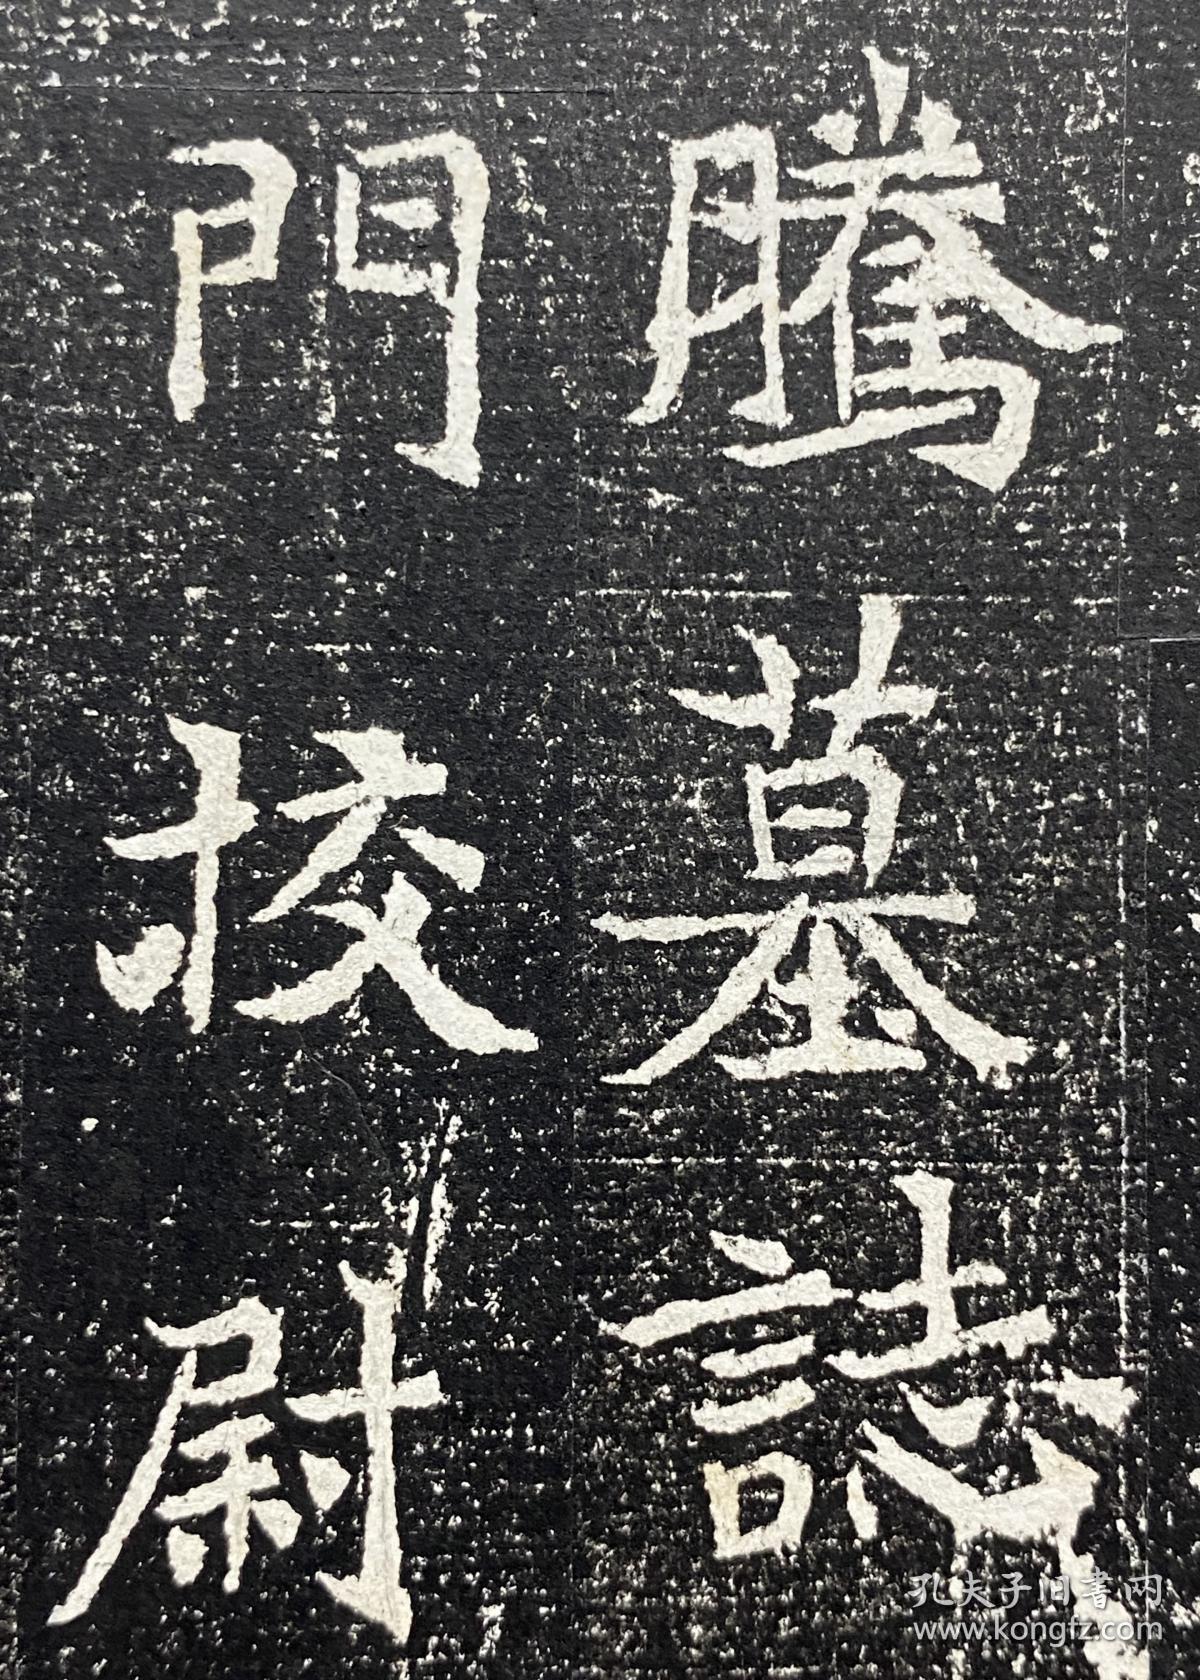 騰墓誌
門校尉
孔夫子旧書网
www.kongfz.com